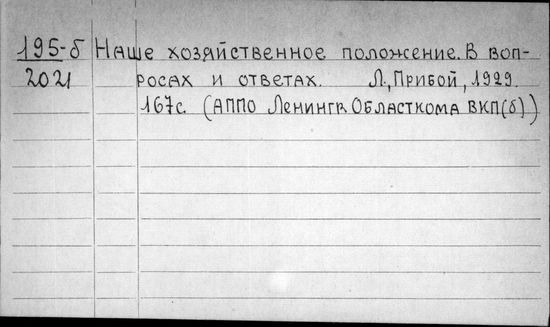 195-б Наше хозяйственное положение. В воп-
2021 росах и ответах. Л., Прибой, 1929.
167с. (АППО Ленингр. Областкома ВКП(б))